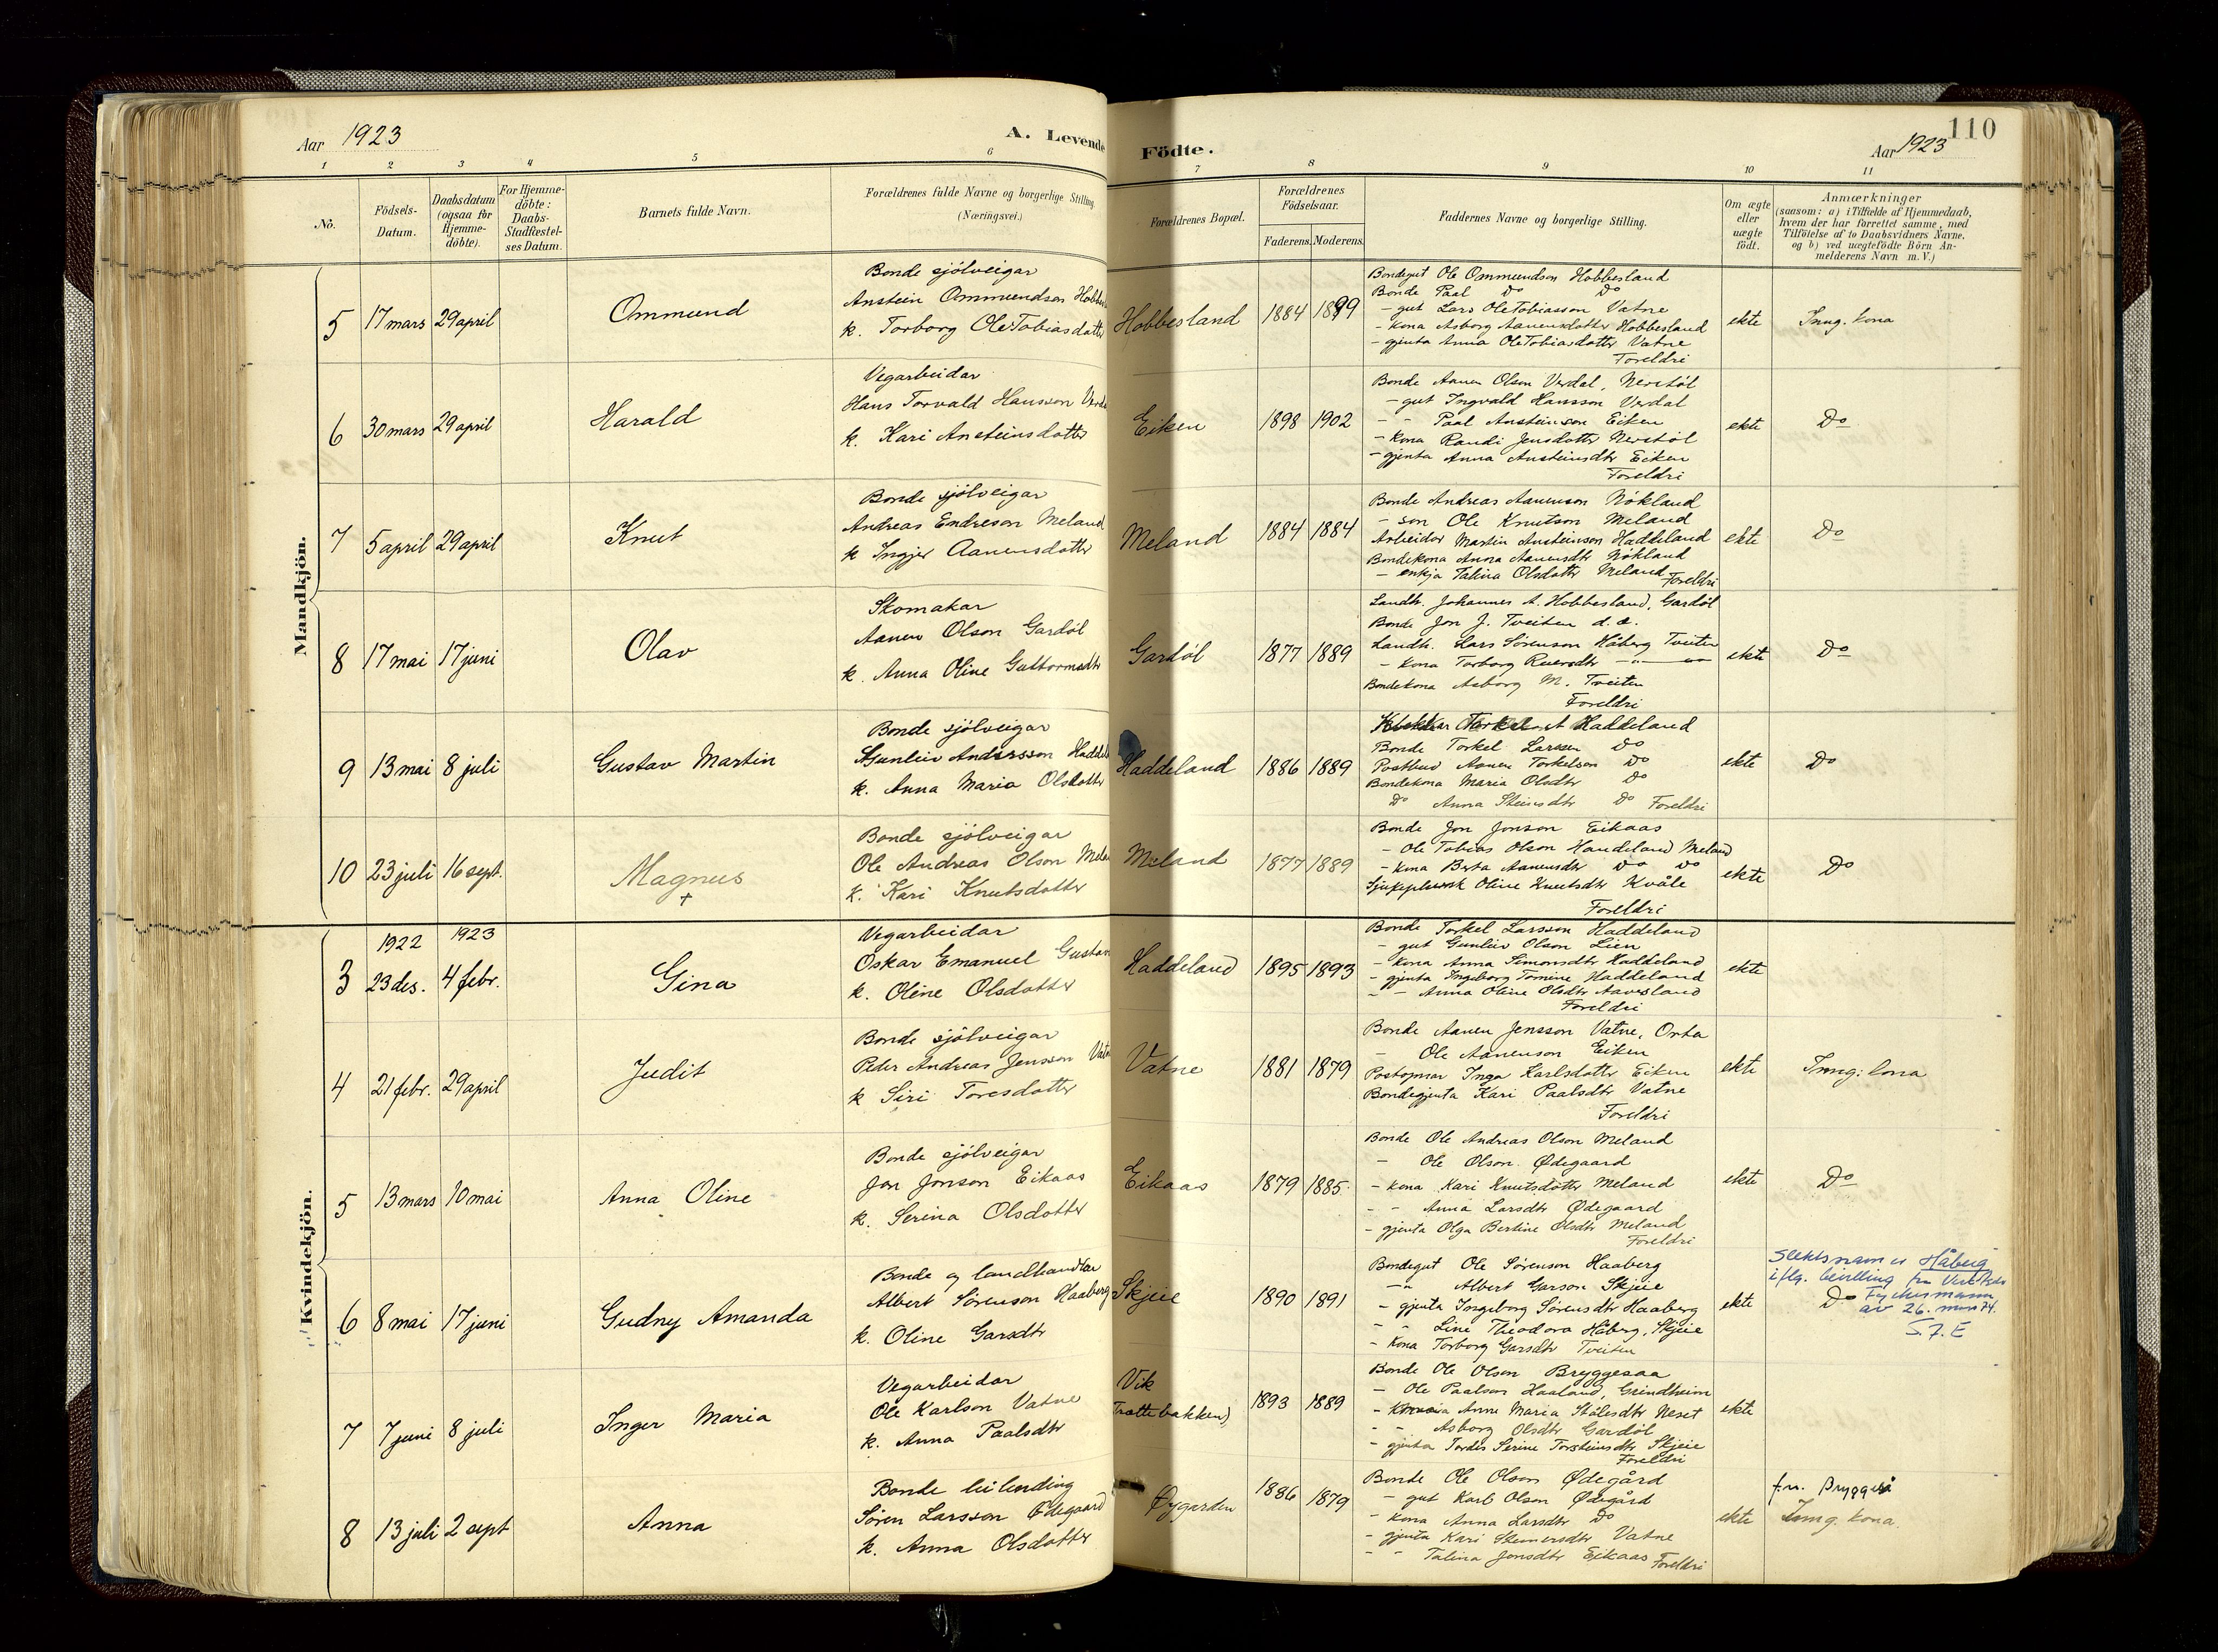 Aar 1923
A. Levende Födte.
Aar 1923
110
1 2 3 4 5 6 7 8 9 10 11
No.
Födsels-
Datum.
Daabsdatum
(ogsaa for
Hjemme-
döbte).
For Hjemme-
döbte:
Daabs-
Stadfæstel-
ses Datum.
Barnets fulde Navn.
Forældrenes fulde Navne og borgerlige Stilling
(Næringsvei.)
Forældrenes Bopæl.
Forældrenes
Födselsaar.
Faderens. Moderens.
Faddernes Navne og borgerlige Stilling.
Om ægte
eller
uægte
födt.
Anmærkninger
(saasom: a) i Tilfælde af Hjemmedaab,
hvem der har forrettet samme, med
Tilföielse af to Daabsvidners Navne,
og b) ved uægtefödte Börn An-
melderens Navn m.V.)
Mandkjön.
5 17 mars 29 april
Ommund
Bonde sjölveigar
Anstein Ommundson
k. Torborg OleTobiasdotter
Hobbesland
1884 1899
Bondegut Ole Ommundson Hobbesland
Bonde Paal Do Do
- gut Lars OleTobiasson Vatne
- kona Asborg Aanensdotter Hobbesland
- gjenta Anna OleTobiasdotter Vatne
Foreldri
ekte
Inng. kona
6 30 mars 29 april
Harald
Vegarbeidar
Hans Torvald Hansson
k. Kari Ansteinsdotter
Eiken
1898 1902
Bonde Aanen Olson Verdal, Nerstöl
- gut Ingvald Hansson Verdal
- - Paal Ansteinson Eiken
- kona Randi Jensdotter Nerstöl
- gjenta Anna Ansteinsdtr Eiken
Foreldri
ekte
Do
7 5 april 29 april
Knut
Bonde sjölveigar
Andreas Endreson Meland
k Ingjer Aanensdotter
Meland
1884 1884
Bonde Andreas Aanenson Nökland
- son Ole Knutson Meland
Arbeidar Martin Ansteinson Haddeland
Bondekona Anna Aanensdtr Nökland
- enkja Talina Olsdotter Meland Foreldri
ekte
Do
8 17 mai 17 juni
Olav
Skomakar
Aanen Olson Gardöl
k. Anna Oline Guttormsdtr
Gardöl
1877 1889
Landh. Johannes A. Hobbesland, Gardöl
Bonde Jon J. Tveiten
Landh. Lars Sörenson Håberg Tveiten
- kona Torborg
Bondekona Asborg M. Tveiten
Foreldri
ekte
Do
9 13 mai 8 juli
Gustav Martin
Bonde sjölveigar
Gunleiv Andersson
k. Anna Maria Olsdotter
Haddeland
1886 1889
Haddeland
Bonde Torkel Larsson Do
Postbud Aanen Torkelson Do
Bondekona Maria Olsdtr Do
Do Anna Steinsdtr Do Foreldri
ekte
Do
10 23 juli 16 sept.
Magnus
+
Bonde sjölveigar
Ole Andreas Olson
k. Kari Knutsdotter
Meland
1877 1889
Bonde Jon Jonson Eikaas
- Ole Tobias Olson Haudeland Meland
- kona Berta Aanensdtr Do Do
Oline Knutsdtr Kvåle
Foreldri
ekte
Do
Kvindekjön.
1922 1923
3 23 des. 4 febr.
Gina
Vegarbeidar
Oskar Emanuel
k. Oline Olsdotter
Haddeland
1895 1893
Bonde Torkel Larsson Haddeland
- gut Gunleiv Olson Lien
- kona Anna Simonsdtr Haddeland
- gjenta Ingeborg Tomine Haddeland
- - Anna Oline Olsdtr Aavesland
Foreldri
ekte
4 21 febr. 29 april
Judit
Bonde sjölveigar
Peder Andreas Jensson
k Siri Toresdotter
Vatne
1881 1879
Bonde Aanen Jensson Vatne, Orta
- Ole Aanenson Eiken
Postopnar Inga Karlsdotter Eiken
Bondegjenta Kari Paalsdtr Vatne
Foreldri
ekte
Inng: kona
5 13 mars 10 mai
Anna Oline
Bonde sjölveigar
Jon Jonson Eikaas
k. Serina Olsdotter
Eikaas
1879 1885
Bonde Ole Andreas Olson Meland
- Ole Olson Ødegaard
- kona Kari Knutsdotter Meland
- - Anna Larsdtr Ødegaard
- gjenta Olga Bertine Olsdtr Meland
Foreldri
ekte
Do
6 8 mai 17 juni
Gudny Amanda
Bonde og landhandlar
Albert Sörenson Haaberg
k. Oline Garsdtr
Skjeie
1890 1891
Bondegut Ole Sörenson Haaberg
-"- Albert Garson Skjeie
- gjenta Ingeborg Sörensdtr Haaberg
- - Line Theodora Håberg, Skjeie
- kona Torborg Garsdtr Tveiten
ekte
Slektsnamn er Håberg
iflg. bevilling fra
Do Fylkesmann
av 26. mars 74.
S.F.E
7 7 juni 8 juli
Inger Maria
Vegarbeidar
Ole Karlson Vatne
k. Anna Paalsdtr
Vik
Trættebakken)
1893 1889
Bonde Ole Olson Bryggesaa
- Ole Paalson Haaland, Grindheim
- Anne Maria Stålesdtr Neset
- - Asborg Olsdtr Gardöl
- gjenta Tordis Serine Torsteinsdtr Skjeie
Foreldri
ekte
8 13 juli 2 sept
Anna
Bonde leilending
Sören Larsson Ødegaard
k. Anna Olsdotter
Øygarden
1886 1879
Bonde Ole Olson Ødegård
- gut Karl Olson Ødegård
- kona Anna Larsdtr Do
- gjenta Kari Steinersdtr Vatne
- - Talina Jonsdtr Eikaas Foreldri
ekte
f.n. Bryggeså
Inng. kona.